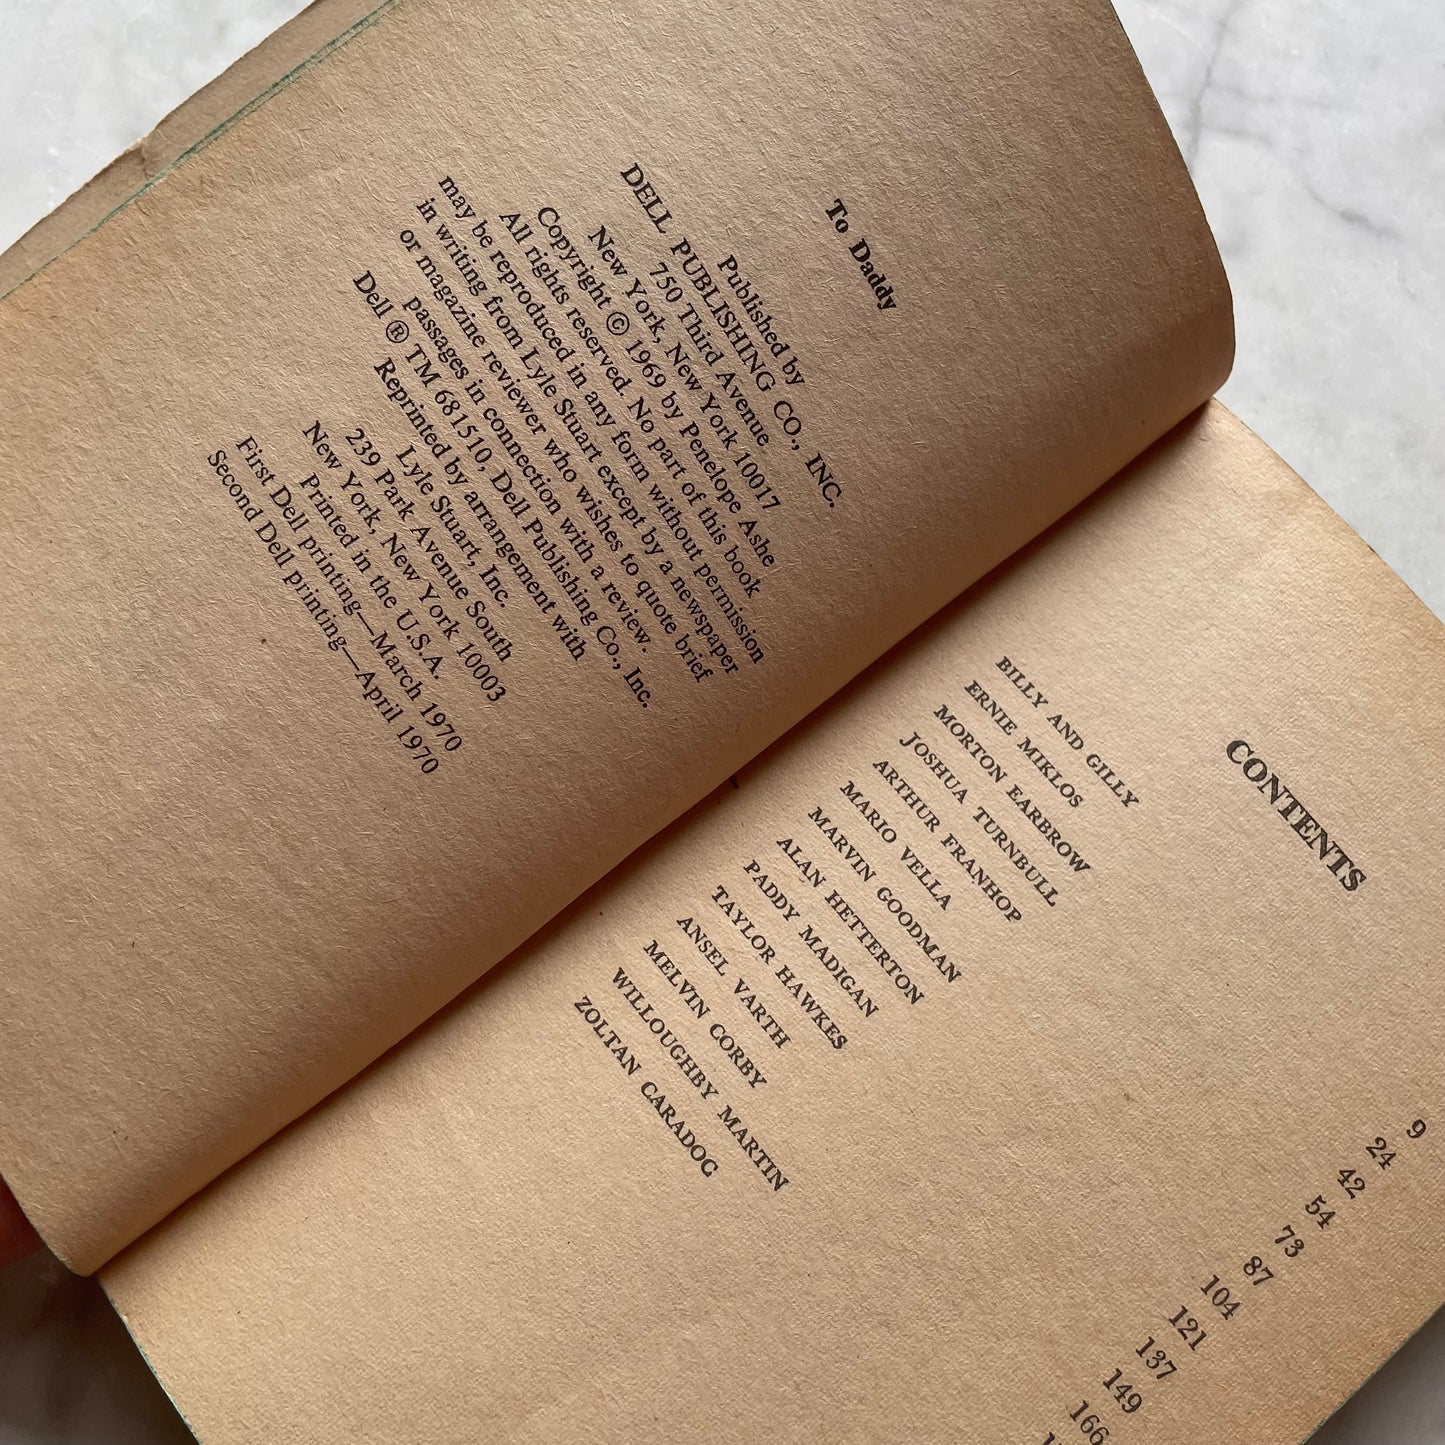 To Daddy
Published by
DELL PUBLISHING CO., INC.
750 Third Avenue
New York, New York 10017
Copyright © 1969 by Penelope Ashe
All rights reserved. No part of this book
may be reproduced in any form without permission
in writing from Lyle Stuart except by a newspaper
or magazine reviewer who wishes to quote brief
passages in connection with a review.
Dell ® TM 681510, Dell Publishing Co., Inc.
Reprinted by arrangement with
Lyle Stuart, Inc.
239 Park Avenue South
New York, New York 10003
Printed in the U.S.A.
First Dell printing—March 1970
Second Dell printing—April 1970
CONTENTS
BILLY AND GILLY 9
ERNIE MIKLOS 24
MORTON EARBROW 42
JOSHUA TURNBULL 54
ARTHUR FRANHOP 73
MARIO VELLA 87
MARVIN GOODMAN 104
ALAN HETTERTON 121
PADDY MADIGAN 137
TAYLOR HAWKES 149
ANSEL VARTH 166
MELVIN CORBY
WILLOUGHBY MARTIN
ZOLTAN CARADOC